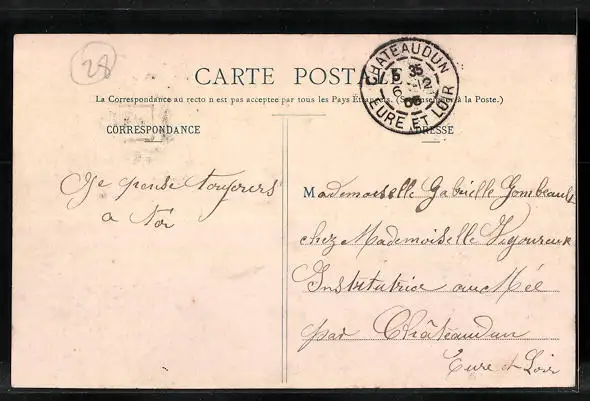 28
CARTE POSTALE
CHATEAUDUN
EURE ET LOIR
La Correspondance au recto n est pas acceptee par tous les Pays Etrangers. (Se renseigner à la Poste.)
CORRESPONDANCE
ADRESSE
Je pense toujours
a toi
Mademoiselle Gabrielle Gombeault
chez Mademoiselle Vigoureux
Institutrice au Mée
par Châteaudun
Eure et Loir